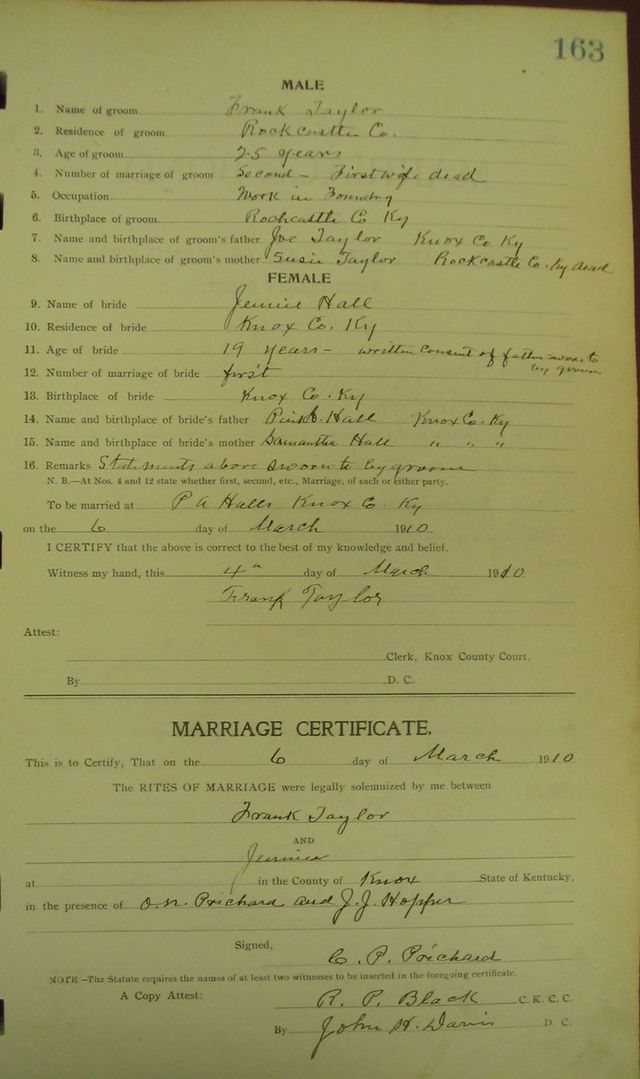 163
MALE
1. Name of groom Frank Taylor
2. Residence of groom Rockcastle Co.
3. Age of groom 25 years
4. Number of marriage of groom Second - First wife dead
5. Occupation Work in Foundry
6. Birthplace of groom Rockcastle Co Ky
7. Name and birthplace of groom's father Joe Taylor Knox Co Ky
8. Name and birthplace of groom's mother Susie Taylor Rockcastle Co. Ky dead
FEMALE
9. Name of bride Jennie Hall
10. Residence of bride Knox Co. Ky
11. Age of bride 19 years - written consent of father sworn to
by groom
12. Number of marriage of bride first
13. Birthplace of bride Knox Co. Ky
14. Name and birthplace of bride's father Hall Knox Co. Ky
15. Name and birthplace of bride's mother Samantha Hall " " "
16. Remarks Statements above sworn to by groom
N. B.—At Nos. 4 and 12 state whether first, second, etc., Marriage, of each or either party.
To be married at P A Halls Knox Co. Ky
on the 6 day of March 1910
I CERTIFY that the above is correct to the best of my knowledge and belief.
Witness my hand, this 4th day of March 1910
Frank Taylor
Attest:
Clerk, Knox County Court.
By D. C.
MARRIAGE CERTIFICATE.
This is to Certify, That on the 6 day of March 1910
The RITES OF MARRIAGE were legally solemnized by me between
Frank Taylor
AND
Jennie
at in the County of Knox State of Kentucky,
in the presence of O. N. Prichard and J. J. Hopper
Signed,
C. P. Prichard
NOTE—The Statute requires the names of at least two witnesses to be inserted in the foregoing certificate.
A Copy Attest: R. P. Black C. K. C. C.
By John H. Davis D. C.